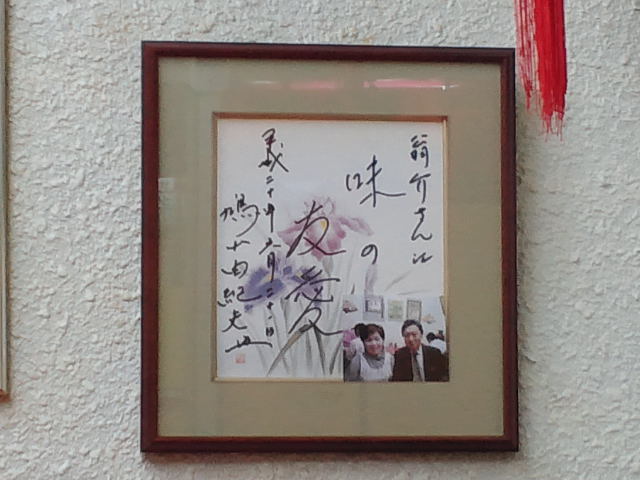 翁介さんに
味の
友愛
義二十年六月二十日
鳩山由紀夫